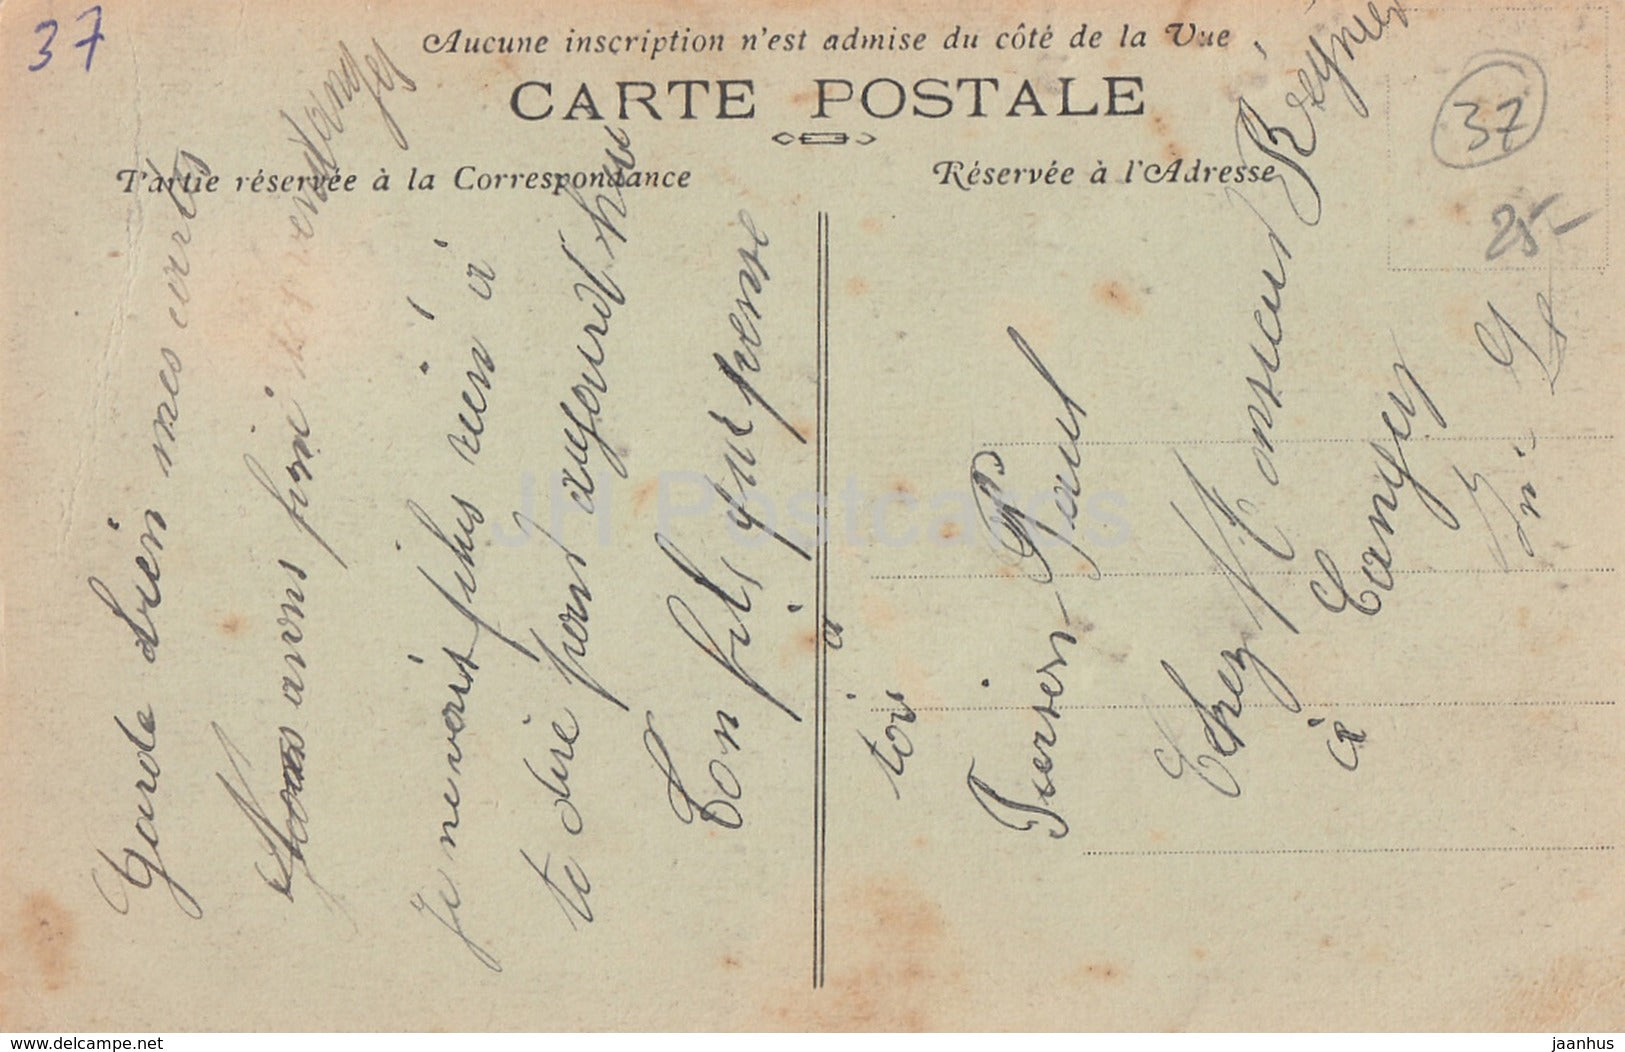 37
Aucune inscription n'est admise du côté de la Vue
CARTE POSTALE
Partie réservée à la Correspondance
Réservée à l'Adresse
37
25-
Garde bien mes cartes
Nous avons fini les vendanges
Je ne vois plus rien à
te dire pour aujourd'hui
Ton fils qui pense
à
toi
Paul
Chez Monsieur Reynier
à Tangey
JH Postcards
www.delcampe.net
jaanhus